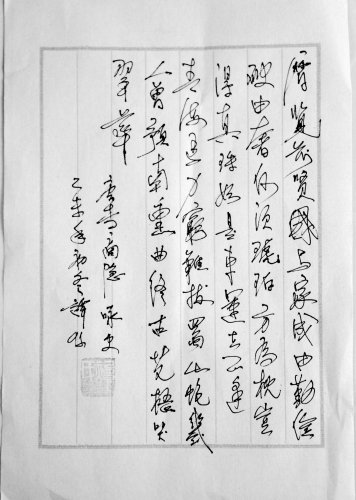 歷覽前賢國与家成由勤儉
破由奢何須琥珀方為枕豈
得真珠始是車運去不逢
青海馬力窮難拔蜀山蛇幾
人曾預南薰曲終古蒼梧哭
翠華
唐李商隱咏史
乙未年初冬